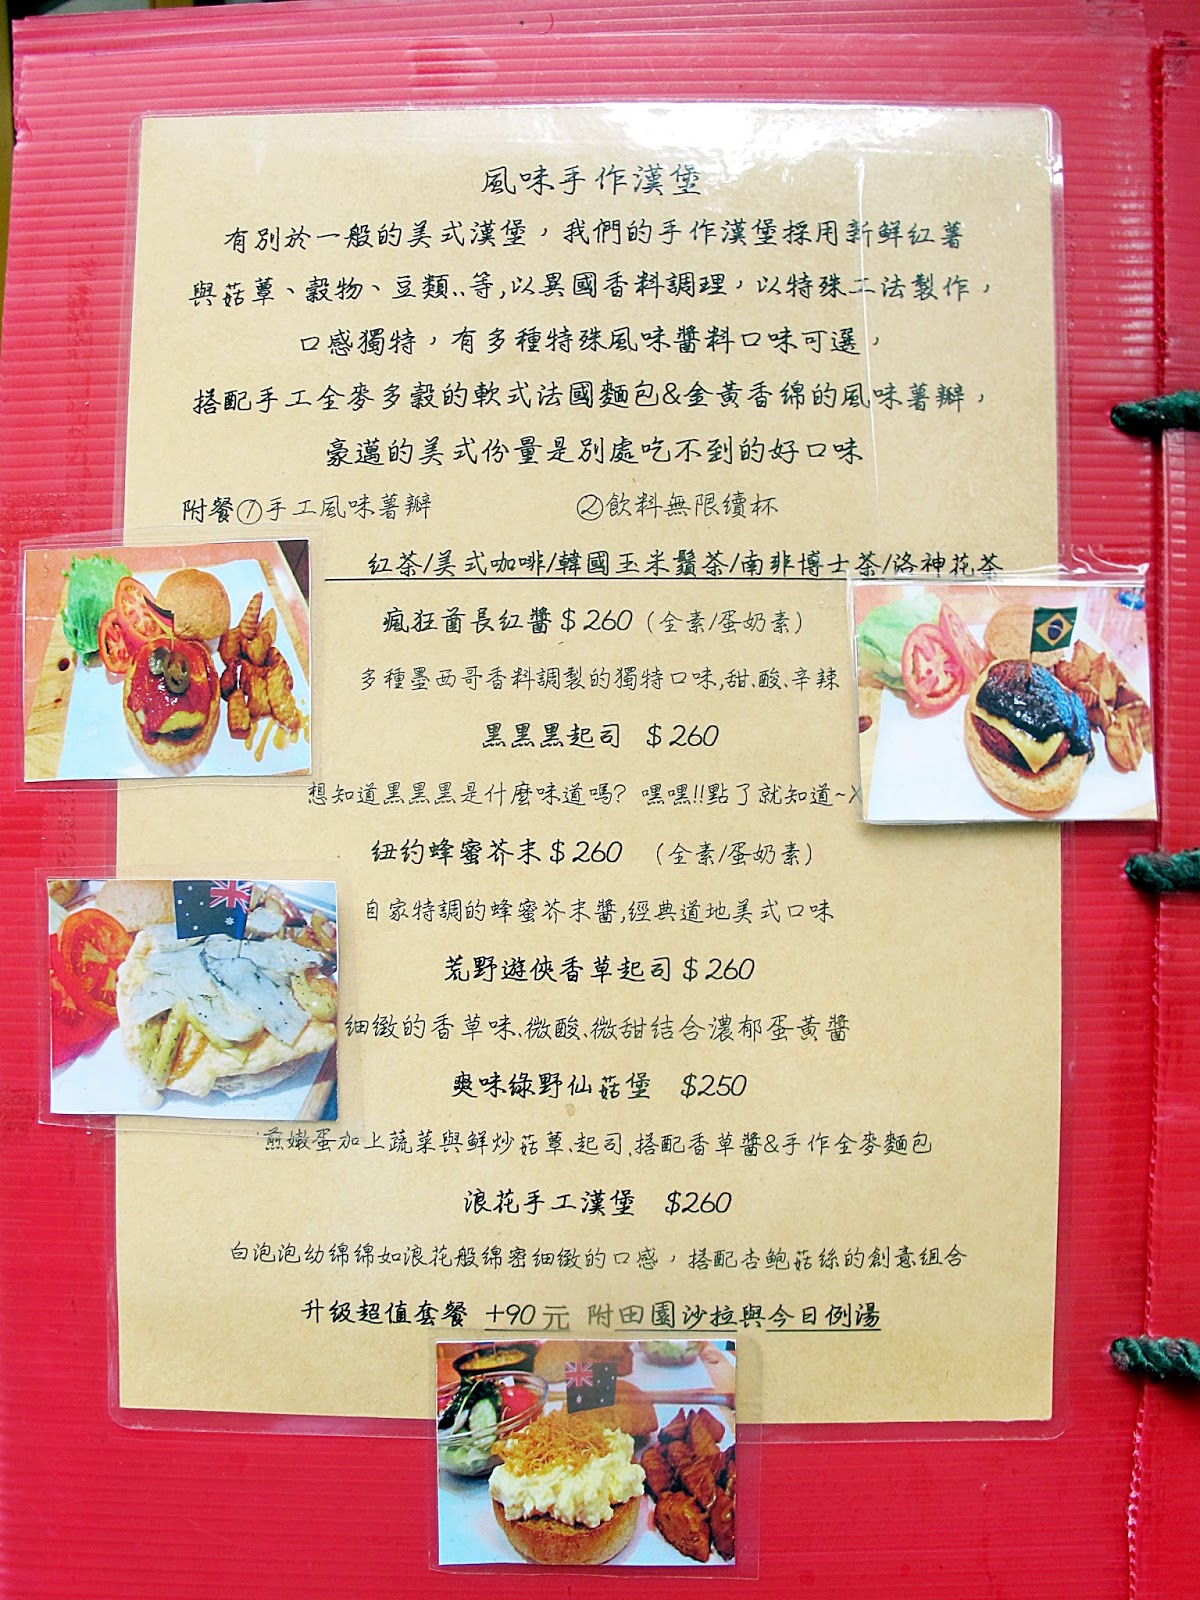 風味手作漢堡
有別於一般的美式漢堡，我們的手作漢堡採用新鮮紅薯
與菇蕈、穀物、豆類..等,以異國香料調理，以特殊工法製作，
口感獨特，有多種特殊風味醬料口味可選，
搭配手工全麥多穀的軟式法國麵包&金黃香綿的風味薯瓣，
豪邁的美式份量是別處吃不到的好口味
附餐①手工風味薯瓣 ②飲料無限續杯
紅茶/美式咖啡/韓國玉米鬚茶/南非博士茶/洛神花茶
瘋狂酋長紅醬$260（全素/蛋奶素）
多種墨西哥香料調製的獨特口味,甜、酸、辛辣
黑黑黑起司 $260
想知道黑黑黑是什麼味道嗎? 嘿嘿!!點了就知道~
紐約蜂蜜芥末$260 （全素/蛋奶素）
自家特調的蜂蜜芥末醬,經典道地美式口味
荒野遊俠香草起司$260
細緻的香草味、微酸、微甜結合濃郁蛋黃醬
爽味綠野仙菇堡 $250
煎嫩蛋加上蔬菜與鮮炒菇蕈、起司,搭配香草醬&手作全麥麵包
浪花手工漢堡 $260
白泡泡幼綿綿如浪花般綿密細緻的口感，搭配杏鮑菇絲的創意組合
升級超值套餐 +90元 附田園沙拉與今日例湯